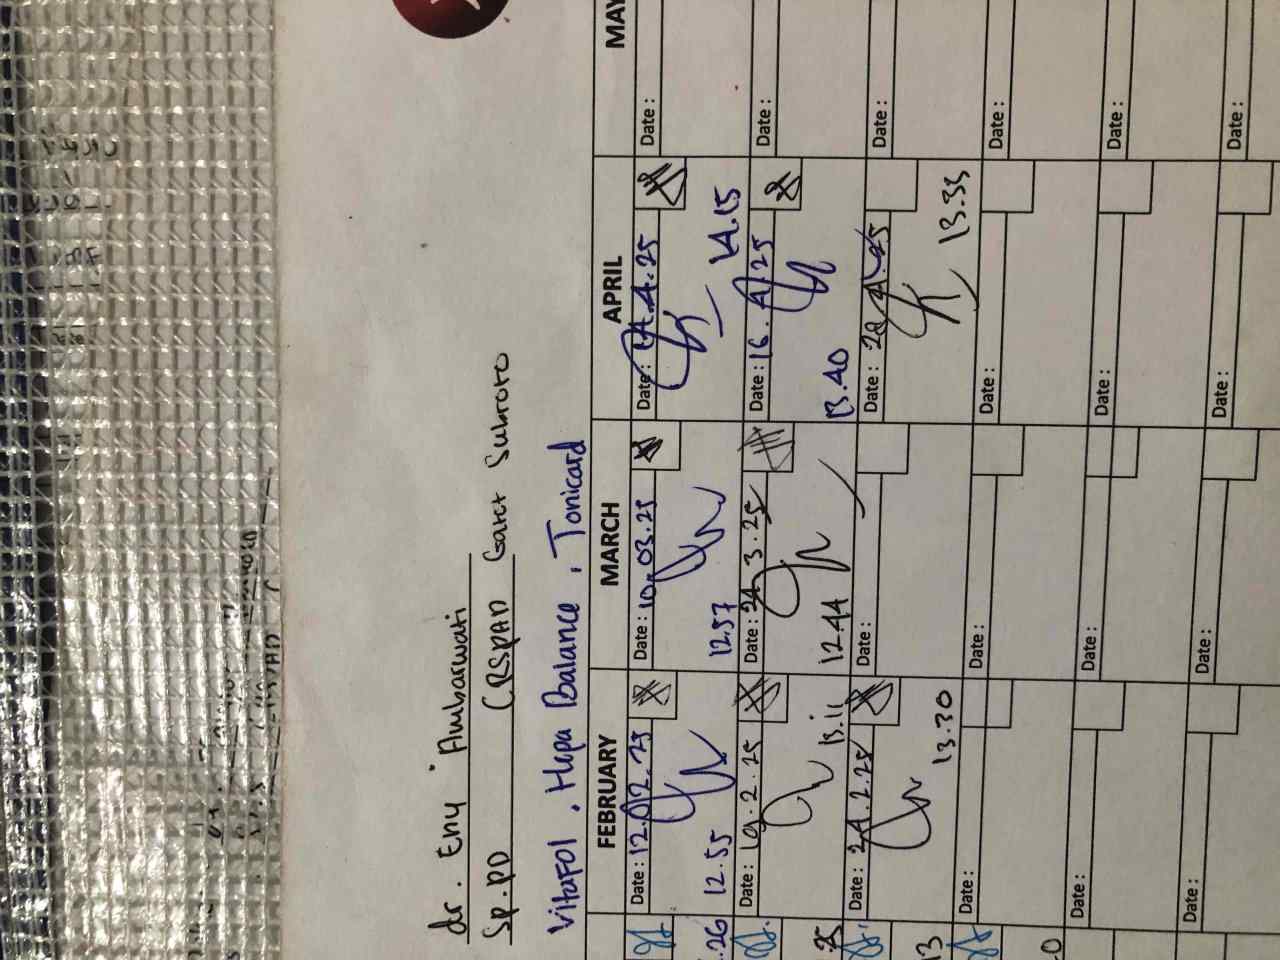 dr. Eny Ambarwati
Sp.PD (RSPAD Gatot Subroto
Vitafol, Hepa Balance, Tonicard
FEBRUARY MARCH APRIL MAY
Date: 12.02.25 Date: 10.03.25 Date: 14.4.25 Date:
12.55 12.57 14.15
Date: 19.2.25 Date: 24.3.25 Date: 16.4.25 Date:
13.11 12.44 13.40
Date: 24.2.25 Date: Date: 28.4.25 Date:
13.30 13.33
Date: Date: Date: Date:
Date: Date: Date: Date:
Date: Date: Date: Date: